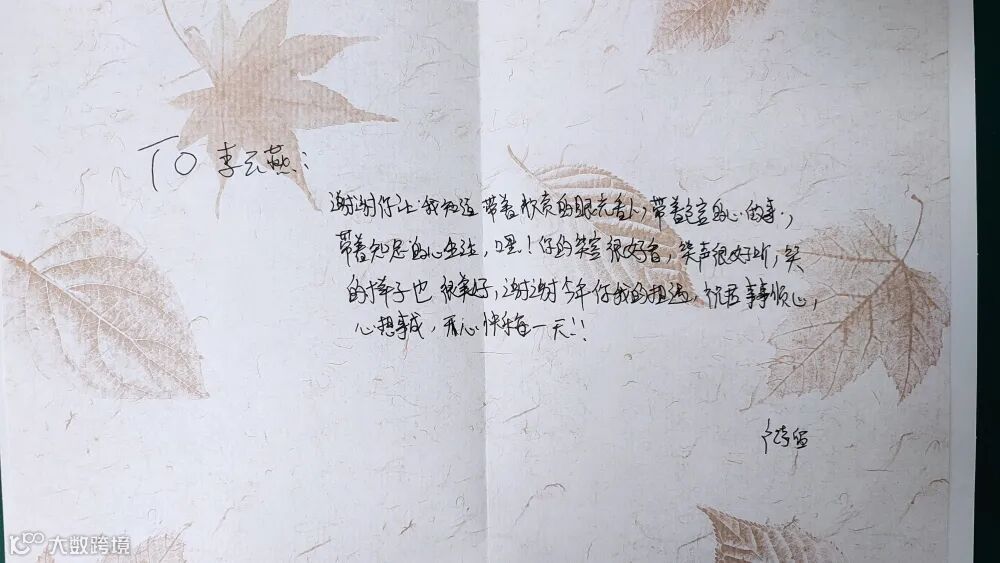 TO 李云燕：
谢谢你让我知道带着欣赏的眼光看人，带着包容的心做事，
带着知恩的心生活，嘿！你的笑容很好看，笑声很好听，笑
的样子也很美好，谢谢今年你我的相遇，祝君事事顺心，
心想事成，开心快乐每一天！！
大数跨境